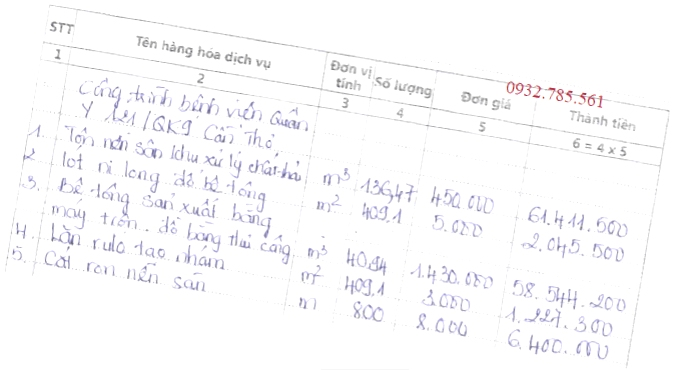 STT Tên hàng hóa dịch vụ Đơn vị tính Số lượng Đơn giá Thành tiền
0932.785.561
1 2 3 4 5 6 = 4 x 5
Công trình bệnh viện Quân
Y 121/QK9 Cần Thơ
1. Tôn nền sân khu xử lý chất thải m³ 136,47 450.000 61.411.500
2 lót ni long đổ bê tông m² 409.1 5.000 2.045.500
3. Bê tông sản xuất bằng
máy trộn. đổ bằng thủ công m³ 40,94 1.430.000 58.544.200
4. Lăn rulo tạo nhám m² 409,1 3.000 1.227.300
5. Cắt ron nền sân m 800 8.000 6.400.000